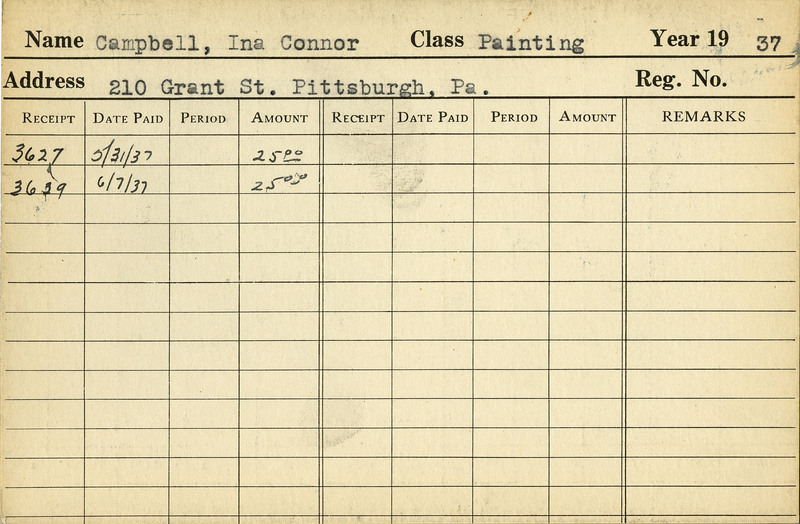 Name Campbell, Ina Connor Class Painting Year 19 37
Address 210 Grant St. Pittsburgh, Pa. Reg. No.
RECEIPT DATE PAID PERIOD AMOUNT RECEIPT DATE PAID PERIOD AMOUNT REMARKS
3627 5/31/37 25.00
6/7/37 25.00